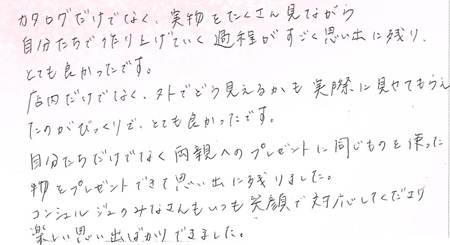 カタログだけでなく、実物をたくさん見ながら
自分たちで作り上げていく過程がすごく思い出に残り、
とても良かったです。
店内だけでなく、外でどう見えるかも実際に見せてもらえ
たのがびっくりで、とても良かったです。
自分たちだけでなく両親へのプレゼントに同じものを使った
物をプレゼントできて思い出に残りました。
コンシェルジュのみなさんもいつも笑顔で対応してくださり
楽しい思い出ばかりできました。